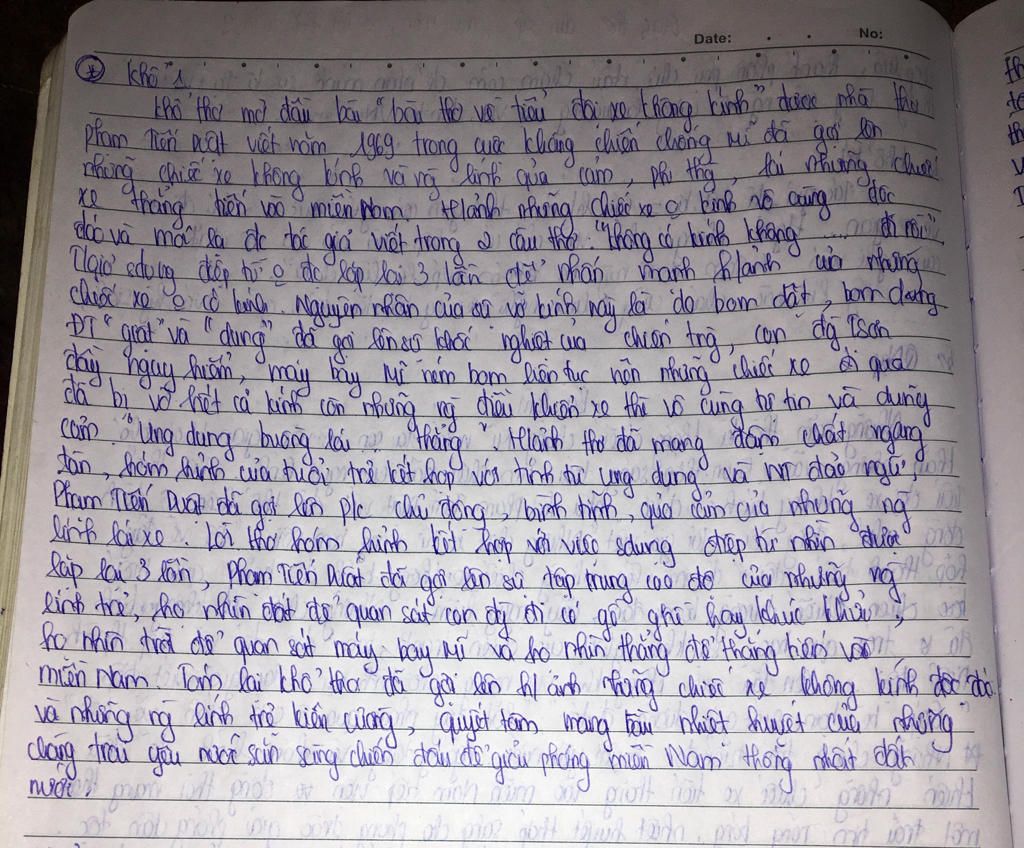 Date: No:
* Khổ 1
Khổ thơ mở đầu bài "bài thơ về tiểu đội xe không kính" được nhà thơ
Phạm Tiến Duật viết năm 1969 trong cuộc kháng chiến chống Mĩ đã gợi lên
những chiếc xe không kính và ng lính quả cảm, phi thg, lái những chiếc
xe thẳng tiến vào miền Nam. Hảnh những chiếc xe o kính vô cùng độc
đáo và mới lạ đc tác giả viết trong 2 câu thơ: "Không có kính không ... đi rồi".
Tgiả sdụng điệp từ o đc lặp lại 3 lần để nhấn mạnh h/ảnh của những
chiếc xe o có kính. Nguyên nhân của sự vỡ kính này là do bom dật, bom dung
ĐT "giật" và "dung" đã gợi lên sự khốc nghiệt của chiến trg, con đg Tsơn
đầy nguy hiểm, máy bay Mĩ ném bom liên tục nên những chiếc xe đi qua
đã bị vỡ hết cả kính còn những ng điều khiển xe thì vô cùng tự tin và dũng
cảm. "Ung dung buồng lái ... thẳng". Hảnh thơ đã mang đậm chất ngang
tàn, hóm hỉnh của tuổi trẻ kết hợp với tính từ ung dung và NT đảo ngữ,
Phạm Tiến Duật đã gợi lên p/c chủ động, bình tĩnh, quả cảm của những ng
lính lái xe. Lời thơ hóm hỉnh kết hợp với việc sdụng điệp từ nhìn được
lặp lại 3 lần, Phạm Tiến Duật đã gợi lên sự tập trung cao độ của những ng
lính trẻ, họ nhìn đất để quan sát con đg đi có gồ ghề hay khúc khuỷu,
họ nhìn trời để quan sát máy bay Mĩ và họ nhìn thẳng để thẳng tiến vào
miền Nam. Tóm lại khổ thơ đã gợi lên h/ảnh những chiếc xe không kính độc đáo
và những ng lính trẻ kiên cường, quyết tâm mang bầu nhiệt huyết của những
chàng trai yêu nước sẵn sàng chiến đấu để giải phóng miền Nam thống nhất đất
nước.